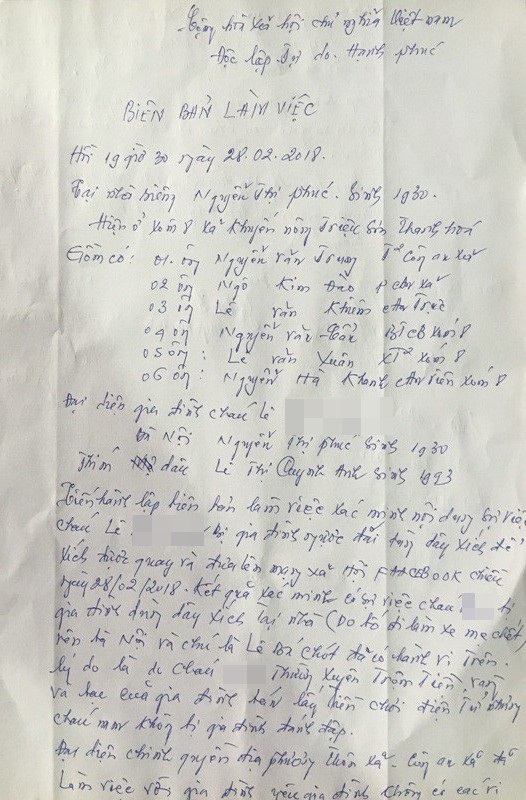 Cộng hòa xã hội chủ nghĩa Việt nam
Độc lập Tự do. Hạnh phúc
BIÊN BẢN LÀM VIỆC
Hồi 19 giờ 30 ngày 28.02.2018.
Tại nhà riêng Nguyễn Thị phúc. Sinh 1930.
Hiện ở xóm 8 xã Khuyến nông Triệu Sơn Thanh hoá
Gồm có: 01. ông Nguyễn văn Trung Công an xã
02 ông Ngô Kim Đào P CA xã
03 ông Lê văn Khiêm CA Trực
04 ông Nguyễn văn BTCB xóm 8
05 ông: Lê văn Xuân xóm 8
06 ông: Nguyễn Hà Khanh CA viên xóm 8
Đại diện gia đình cháu Lê
Bà Nội Nguyễn Thị phúc Sinh 1930
Thím dâu Lê Thị Quỳnh Anh Sinh 1993
Tiến hành lập biên bản làm việc xác minh nội dung sự việc
cháu Lê bị gia đình ngược đãi dùng dây xích để
xích được quay và đưa lên mạng xã hội FAACBOOK chiều
ngày 28/02/2018. Kết quả xác minh có sự việc cháu bị
gia đình dùng dây xích tại nhà (Do bố đi làm xa mẹ chết)
nên bà Nội và chú là Lê Bá Chót đã có hành vi Trên.
lý do là do cháu Thường xuyên Trộm Tiền, vàng
và bạc của gia đình bán lấy tiền chơi điện Tử nhưng
cháu nam không bị gia đình đánh đập.
Đại diện chính quyền địa phương Thôn xã. Công an xã đã
Làm việc với gia đình yêu gia đình không có các vi